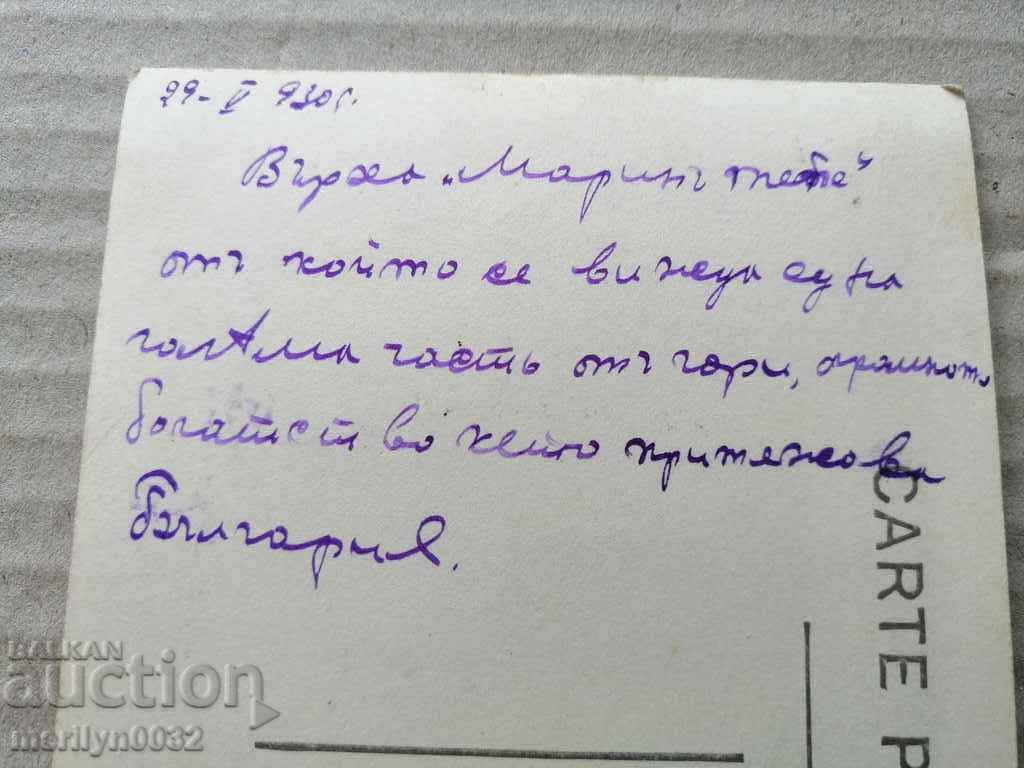 29-V 930 г.
Върха „Маринъ тепе"
отъ който се вижда една
голѣма часть отъ гори, огромното
богатство което притежава
България.
CARTE P
BALKAN
auction
merilyn0032